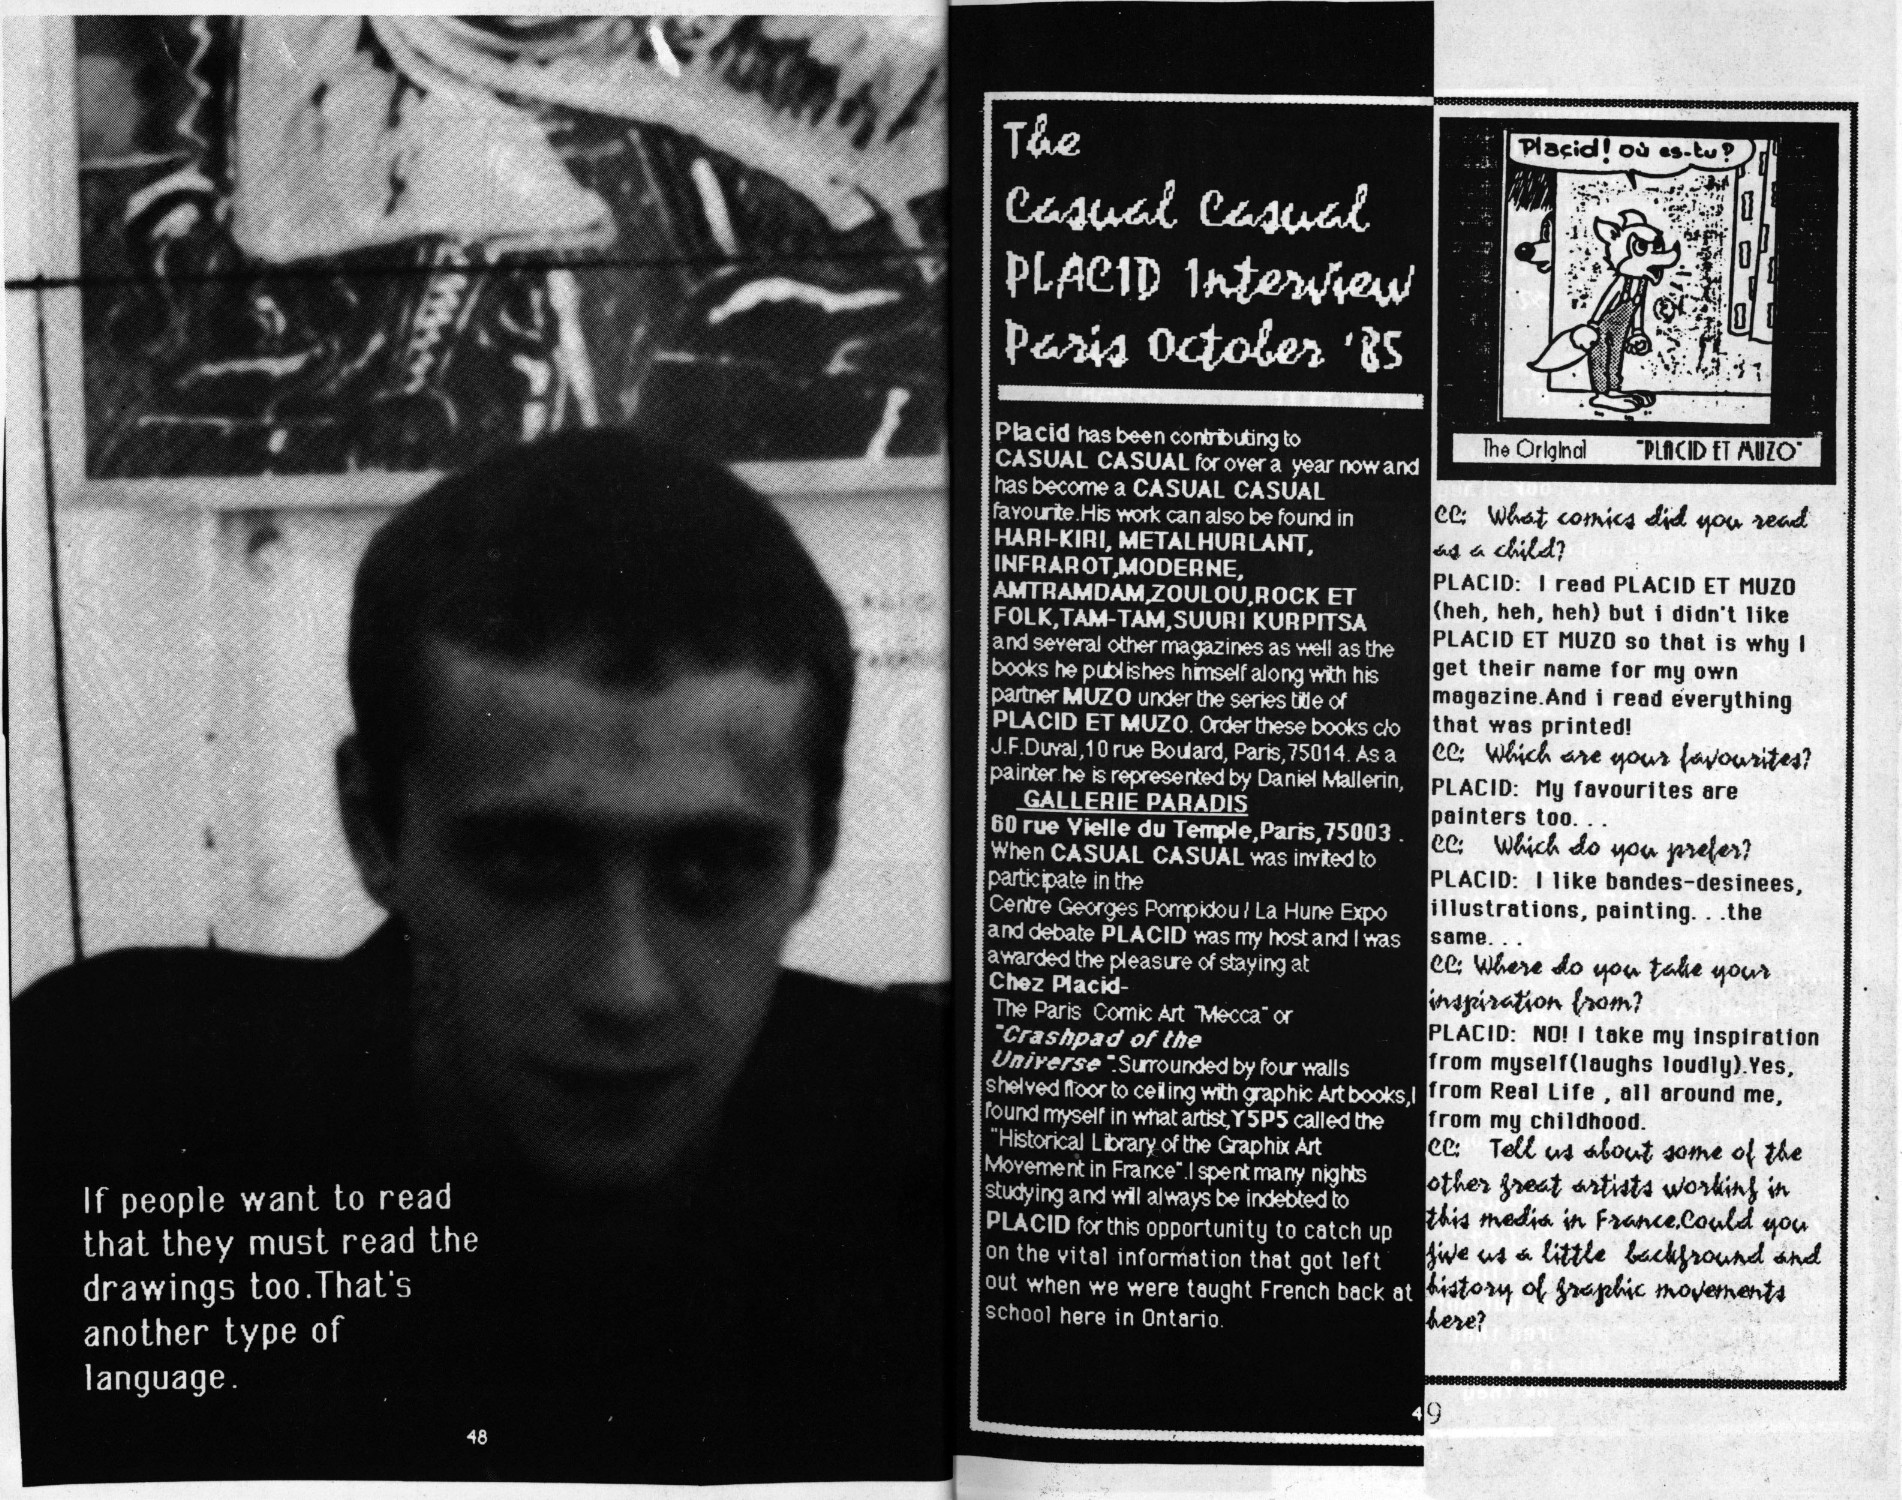 If people want to read
that they must read the
drawings too.That's
another type of
language.
48
The
Casual Casual
PLACID Interview
Paris October '85
Placid has been contributing to
CASUAL CASUAL for over a year now and
has become a CASUAL CASUAL
favourite.His work can also be found in
HARI-KIRI, METALHURLANT,
INFRAROT,MODERNE,
AMTRAMDAM,ZOULOU,ROCK ET
FOLK,TAM-TAM,SUURI KURPITSA
and several other magazines as well as the
books he publishes himself along with his
partner MUZO under the series title of
PLACID ET MUZO. Order these books c/o
J.F.Duval,10 rue Boulard, Paris,75014. As a
painter he is represented by Daniel Mallerin,
GALLERIE PARADIS
60 rue Vielle du Temple,Paris,75003 .
When CASUAL CASUAL was invited to
participate in the
Centre Georges Pompidou/ La Hune Expo
and debate PLACID was my host and I was
awarded the pleasure of staying at
Chez Placid-
The Paris Comic Art "Mecca" or
"Crashpad of the
Universe".Surrounded by four walls
shelved floor to ceiling with graphic Art books,I
found myself in what artist,Y5P5 called the
"Historical Library of the Graphix Art
Movement in France".I spent many nights
studying and will always be indebted to
PLACID for this opportunity to catch up
on the vital information that got left
out when we were taught French back at
school here in Ontario.
Placid! où es-tu?
The Original "PLACID ET MUZO"
CC: What comics did you read
as a child?
PLACID: I read PLACID ET MUZO
(heh, heh, heh) but i didn't like
PLACID ET MUZO so that is why I
get their name for my own
magazine.And i read everything
that was printed!
CC: Which are your favourites?
PLACID: My favourites are
painters too. . .
CC: Which do you prefer?
PLACID: I like bandes-desinees,
illustrations, painting. . .the
same. . .
CC: Where do you take your
inspiration from?
PLACID: NO! I take my inspiration
from myself(laughs loudly).Yes,
from Real Life , all around me,
from my childhood.
CC: Tell us about some of the
other great artists working in
this media in France.Could you
give us a little background and
history of graphic movements
here?
49